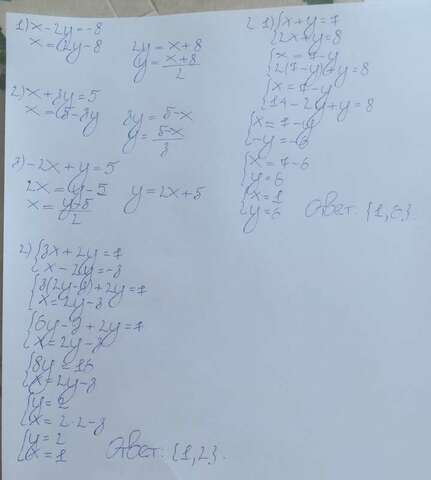 1) x-2y=-8
x=2y-8
2y=x+8
y=\frac{x+8}{2}
2) x+3y=5
x=5-3y
3y=5-x
y=\frac{5-x}{3}
3) -2x+y=5
2x=y-5
x=\frac{y-5}{2}
y=2x+5
2) {3x+2y=7
x-2y=-3
{3(2y-3)+2y=7
x=2y-3
{6y-9+2y=7
x=2y-3
{8y=16
x=2y-3
{y=2
x=2·2-3
{y=2
x=1
Ответ: {1,2}.
2. 1) {x+y=7
2x+y=8
{x=7-y
2(7-y)+y=8
{x=7-y
14-2y+y=8
{x=7-y
-y=-6
{x=7-6
y=6
{x=1
y=6
Ответ: {1,6}.